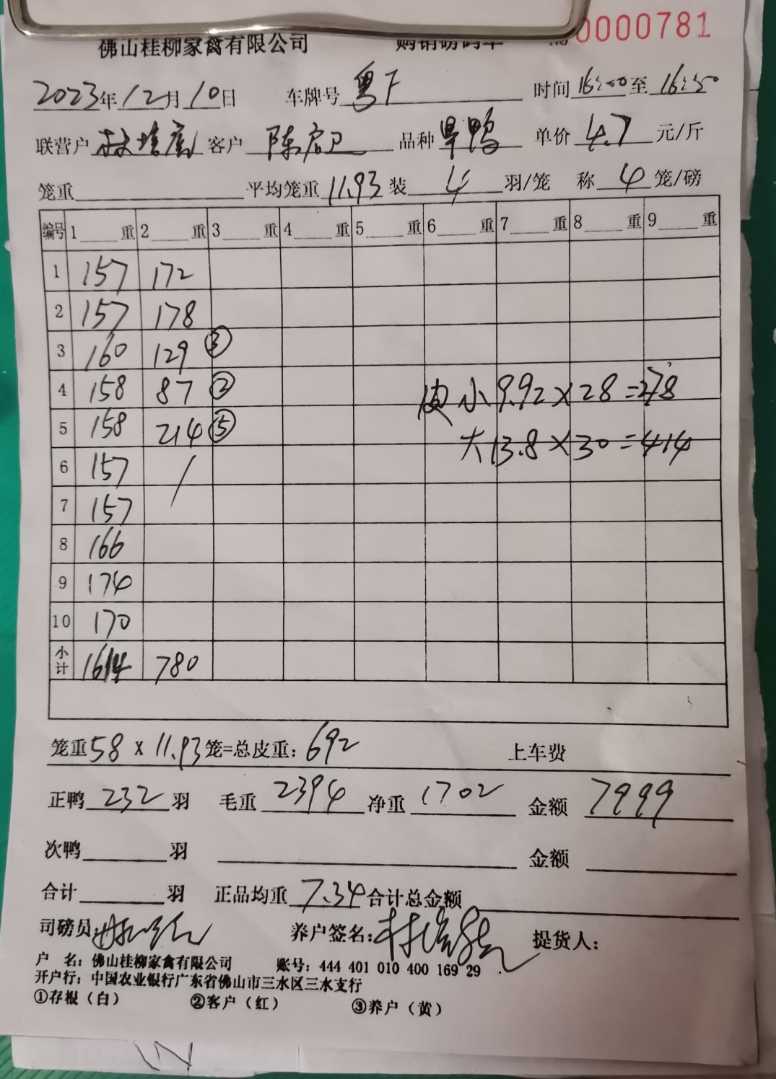 佛山桂柳家禽有限公司 购销磅码单 No 0000781
2023年12月10日 车牌号 粤F 时间 16:00至 16:50
联营户 客户 陈启卫 品种 旱鸭 单价 4.7 元/斤
笼重 平均笼重 11.93 装 4 羽/笼 称 4 笼/磅
编号 1 重 2 重 3 重 4 重 5 重 6 重 7 重 8 重 9 重
1 157 172
2 157 178
3 160 129 ③
4 158 87 ② 皮 小 9.92×28=278
5 158 214 ⑤ 大 13.8×30=414
6 157 /
7 157
8 166
9 174
10 170
小计 1614 780
笼重 58 × 11.93 笼=总皮重: 692 上车费
正鸭 232 羽 毛重 2394 净重 1702 金额 7999
次鸭 羽 金额
合计 羽 正品均重 7.34 合计总金额
司磅员: 养户签名: 提货人:
户 名: 佛山桂柳家禽有限公司 账号: 444 401 010 400 169 29
开户行: 中国农业银行广东省佛山市三水区三水支行
①存根（白） ②客户（红） ③养户（黄）